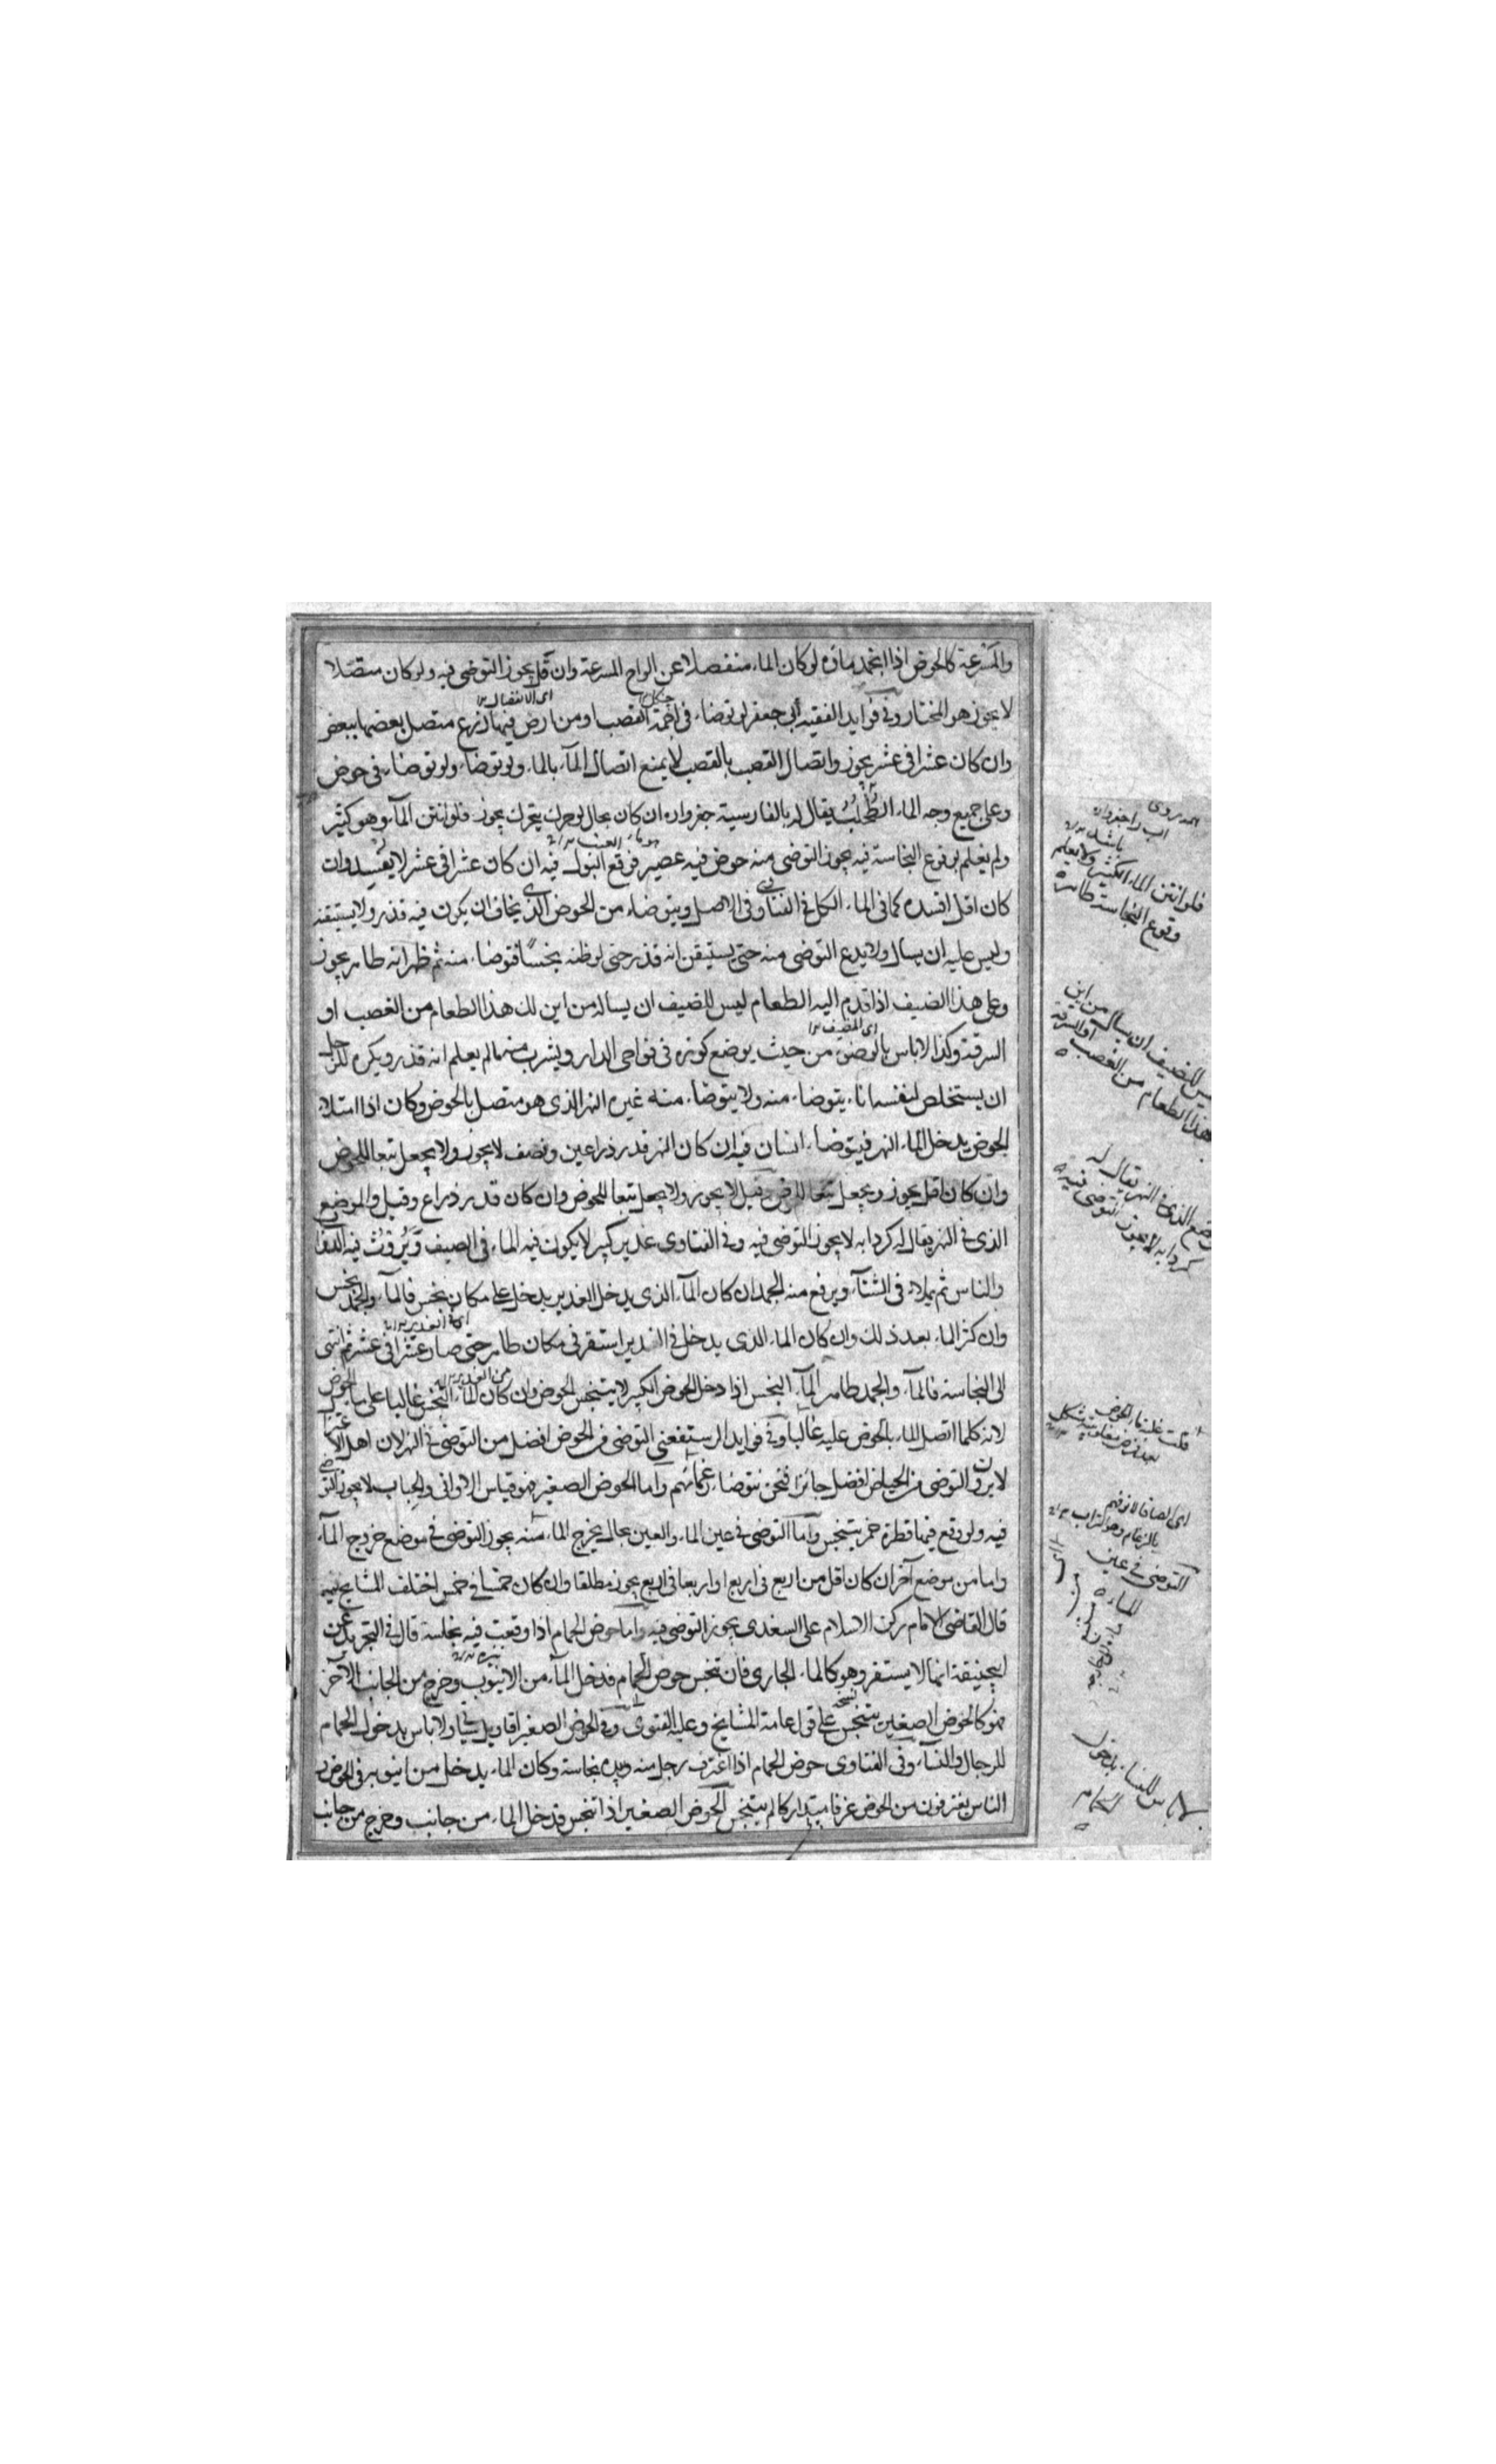 والمشرعة كالحوض اذا انجمد ماؤه لو كان الماء منفصلا عن الواح المشرعة وان قل يجوز التوضى فيه ولو كان متصلا
لا يجوز هو المختار وفى فوايد الفقيه أبى جعفر لو توضاء فى اجمة القصب او من ارض فيها زرع متصل بعضها ببعض
وان كان عشرا فى عشر يجوز واتصال القصب بالقصب لا يمنع اتصال المآء بالماء ولو توضاء ولو توضاء فى حوض
وعلى جميع وجه الماء الطحلب يقال له بالفارسية جغزواره ان كان بحال لو حرك يتحرك يجوز فلو انتن المآء وهو كثير
ولم يعلم بوقوع النجاسة فيه يجوز التوضى منه حوض فيه عصير فوقع البول فيه ان كان عشرا فى عشر لا يفسد وان
كان اقل افسده كما فى الماء الكل فى الفتاوى وفى الاصل ويتوضاء من الحوض الذى يخاف ان يكون فيه قذر ولا يستيقنه
وليس عليه ان يسال ولا يدع التوضى منه حتى يستيقن انه قذر حتى لو ظنه نجسا فتوضاء منه ثم ظهر انه طاهر يجوز
وعلى هذا الضيف اذا قدم اليه الطعام ليس للضيف ان يساله من اين لك هذا الطعام من الغصب او
السرقة وكذا لا باس بالتوضى من حيث يوضع كوزه فى نواحى الدار ويشرب منه ما لم يعلم انه قذر ويكره للرجل
ان يستخلص لنفسه اناء يتوضاء منه ولا يتوضاء منه غيره النهر الذى هو متصل بالحوض وكان اذا امتلاء
الحوض يدخل الماء النهر فيتوضاء انسان فيه ان كان النهر قدر ذراعين ونصف لا يجوز ولا يجعل تبعا للحوض
وان كان اقل يجوز ويجعل تبعا للحوض وقيل لا يجوز ولا يجعل تبعا للحوض وان كان قدر ذراع وقيل والموضع
الذى فى النهر يقال له كردابه لا يجوز التوضى فيه وفى الفتاوى غدير كبير لا يكون فيه الماء فى الصيف ويروث فيه الدواب
والناس ثم يملاء فى الشتآء ويرفع منه الجمد ان كان المآء الذى يدخل الغدير يدخل على مكان نجس فالمآء والجمد نجس
وان كثر الماء بعد ذلك وان كان الماء الذى يدخل فى الغدير استقر فى مكان طاهر حتى صار عشرا فى عشر ثم انتهى
الى النجاسة فالمآء والجمد طاهر المآء النجس اذا دخل الحوض الكبير لا يتنجس الحوض وان كان الماء النجس غالبا على ماء الحوض
لانه كلما اتصل الماء بالحوض عليه غالبا وفى فوايد الرستفغنى التوضى فى الحوض افضل من التوضى فى النهر لان اهل الاعتزال
لا يرون التوضى من الحياض افضل جائزا فنحن نتوضاء رغما لهم واما الحوض الصغير فهو قياس الاوانى والجباب لا يجوز التوضى
فيه ولو وقع فيها قطرة خمر يتنجس وآما التوضى فى عين الماء والعين بحال يخرج الماء منه يجوز التوضى فى موضع خروج المآء
واما من موضع آخر ان كان اقل من اربع فى اربع او اربعا فى اربع يجوز مطلقا وان كان خمسا فى خمس اختلف المشايخ فيه
قال القاضى الامام ركن الاسلام على السغدى يجوز التوضى فيه واما حوض الحمام اذا وقعت فيه نجاسة قال فى التجريد عن
ابيحنيفة انها لا يستقر وهو كالماء الجارى فان تنجس حوض الحمام فدخل المآء من الانبوب وخرج من الجانب الآخر
فهو كالحوض الصغير يتنجس على قول عامة المشايخ وعليه الفتوى وفى الحوض الصغير اقاويل ولا باس بدخول الحمام
للرجال والنسآء وفى الفتاوى حوض الحمام اذا اغترف رجل منه وبيده نجاسة وكان الماء يدخل من انبوبه فى الحوض و
الناس يغترفون من الحوض غرفا متداركا لم يتنجس الحوض الصغير اذا تنجس فدخل الماء من جانب وخرج من جانب
اى الانفصال
اى المضيف
اى فى الغدير
من الغدير
فلو انتن الماء الكثير ولا يعلم
وقوع النجاسة طاهرة
للضيف ان يسال من اين
هذا الطعام من الغصب او السرقة
الذى فى النهر يقال له
كردابه لا يجوز التوضى فيه
التوضى فى عين
الماء
لا باس للنساء بدخول
الحمام